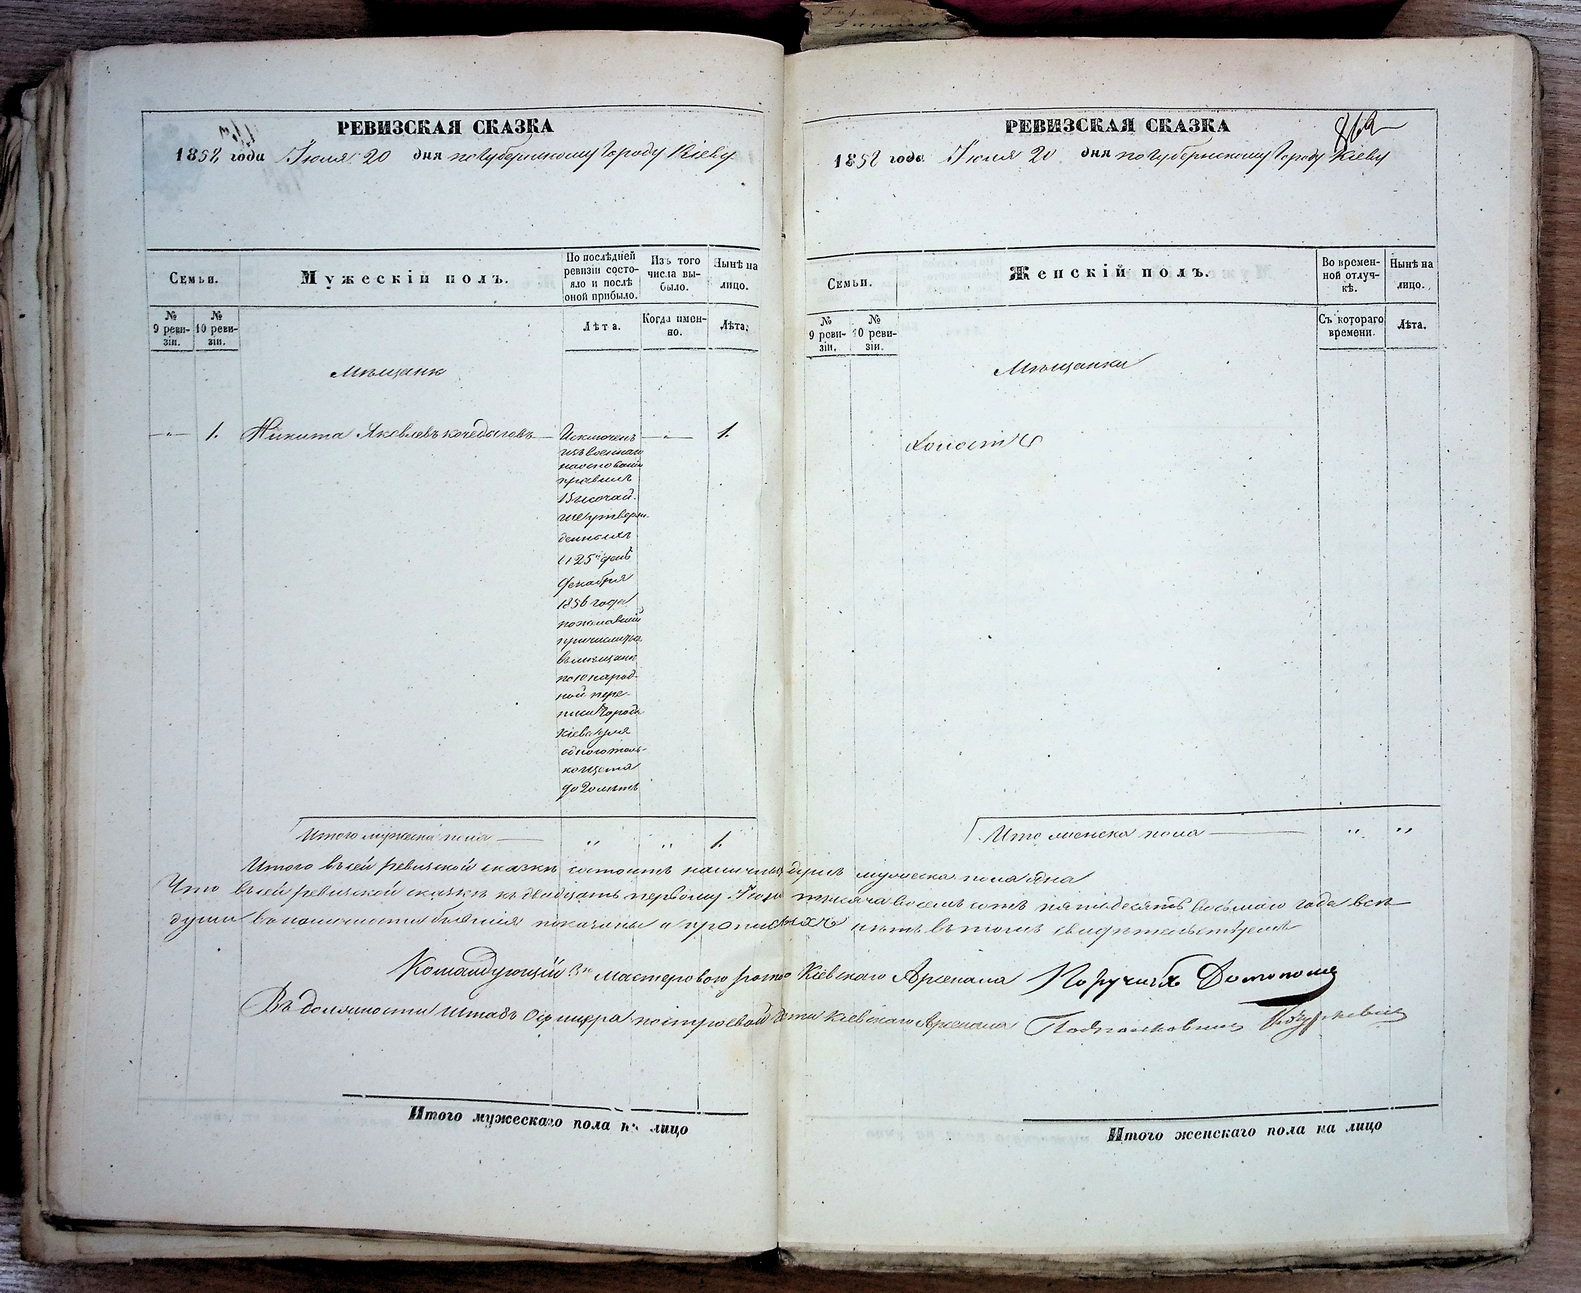 РЕВИЗСКАЯ СКАЗКА
1858 года Іюля 20 дня по Губернскому Городу Кіеву
Семьи.
Мужескій полъ.
По послѣдней ревизіи состояло и послѣ оной прибыло.
Изъ того числа выбыло.
Нынѣ на лицо.
№ 9 ревизіи.
№ 10 ревизіи.
Лѣта.
Когда именно.
Лѣта.
Мѣщанъ
1. Никита Яковлевъ
Исключенъ
изъ военнаго
на основаніи
правилъ
Высочай-
ше утверж-
денныхъ
въ 25й день
Декабря
1856 года
пожелавшій
въ мѣщане
по 10 народ-
ной пере-
писи Города
Кіева для
одного толь-
ко щета
1.
Итого мужеска пола 1.
РЕВИЗСКАЯ СКАЗКА
862
1858 года Іюля 20 дня по Губернскому Городу Кіеву
Семьи.
Женскій полъ.
Во временной отлучкѣ.
Нынѣ на лицо.
№ 9 ревизіи.
№ 10 ревизіи.
Съ котораго времени.
Лѣта.
Мѣщанки
Холостъ
Итого женска пола
Итого въ сей ревизской сказкѣ состоитъ наличныхъ душъ мужеска пола одна
Что въ сей ревизской сказкѣ къ двадцать первому Іюля тысяча восемь сотъ пятьдесятъ восьмаго года всѣ
души въ наличности бывшія показаны и прописныхъ нѣтъ въ томъ свидѣтельствуемъ
Командующій 3ю мастеровою ротою Кіевскаго Арсенала Поручикъ
Въ должности Штабъ Офицера по строевой части Кіевскаго Арсенала Подполковникъ
Итого мужескаго пола на лицо
Итого женскаго пола на лицо